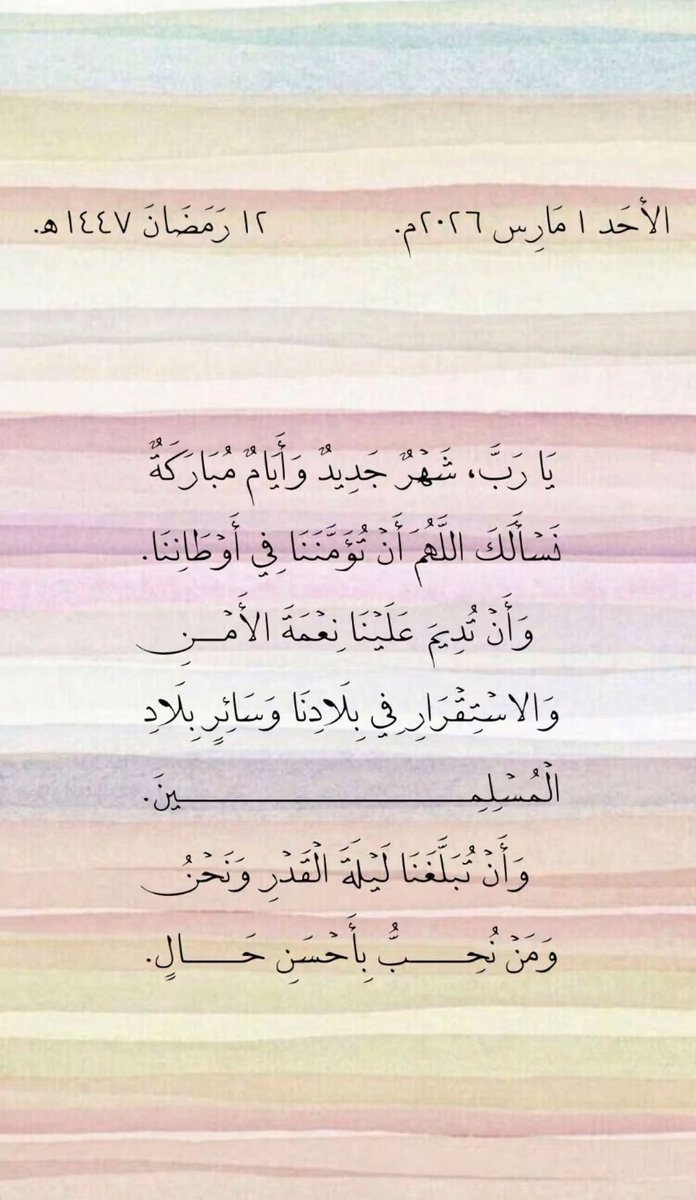 الأحَد ١ مَارِس ٢٠٢٦م. ١٢ رَمَضَانَ ١٤٤٧هـ.
يَا رَبَّ، شَهْرٌ جَدِيدٌ وَأَيَامٌ مُبَارَكَةٌ
نَسْأَلَكَ اللَّهُمَ أَنْ تُؤَمَّنَنَا فِي أَوْطَانِنَا.
وَأَنْ تُدِيمَ عَلَيْنَا نِعْمَةَ الأَمْــنِ
وَالاسْتِقْرَارِ فِي بِلَادِنَا وَسَائِرِ بِلَادِ
الْمُسْلِمِــــــــــــــــينَ.
وَأَنْ تُبَلَّغَنَا لَيْلَةَ الْقَدْرِ وَنَحْنُ
وَمَنْ نُحِــــبُّ بِأَحْسَنِ حَــــالٍ.